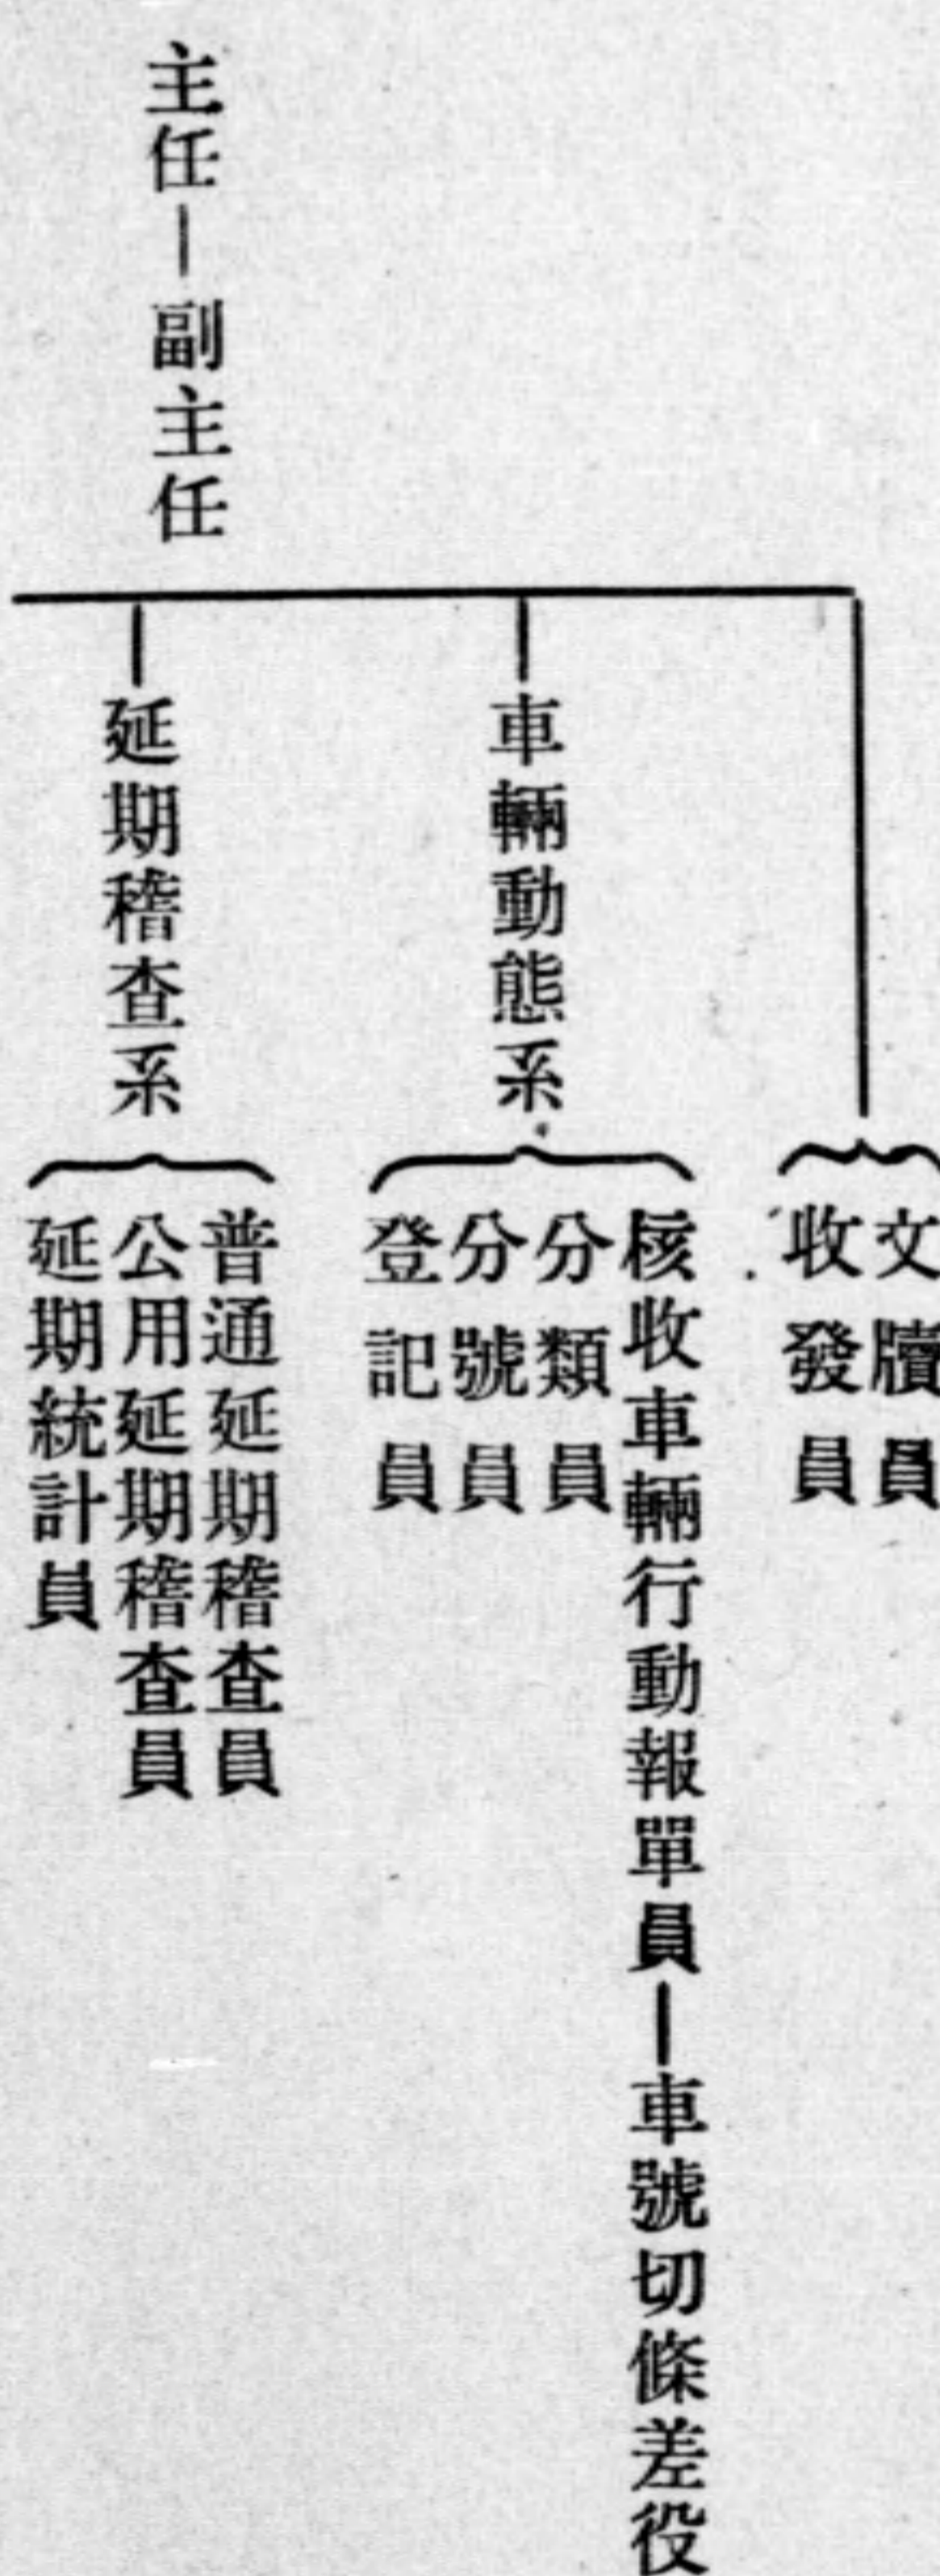 主任—副主任
文牘員
收發員
車輛動態系
核收車輛行動報單員—車號切條差役
分類員
分號員
登記員
延期稽查系
普通延期稽查員
公用延期稽查員
延期統計員